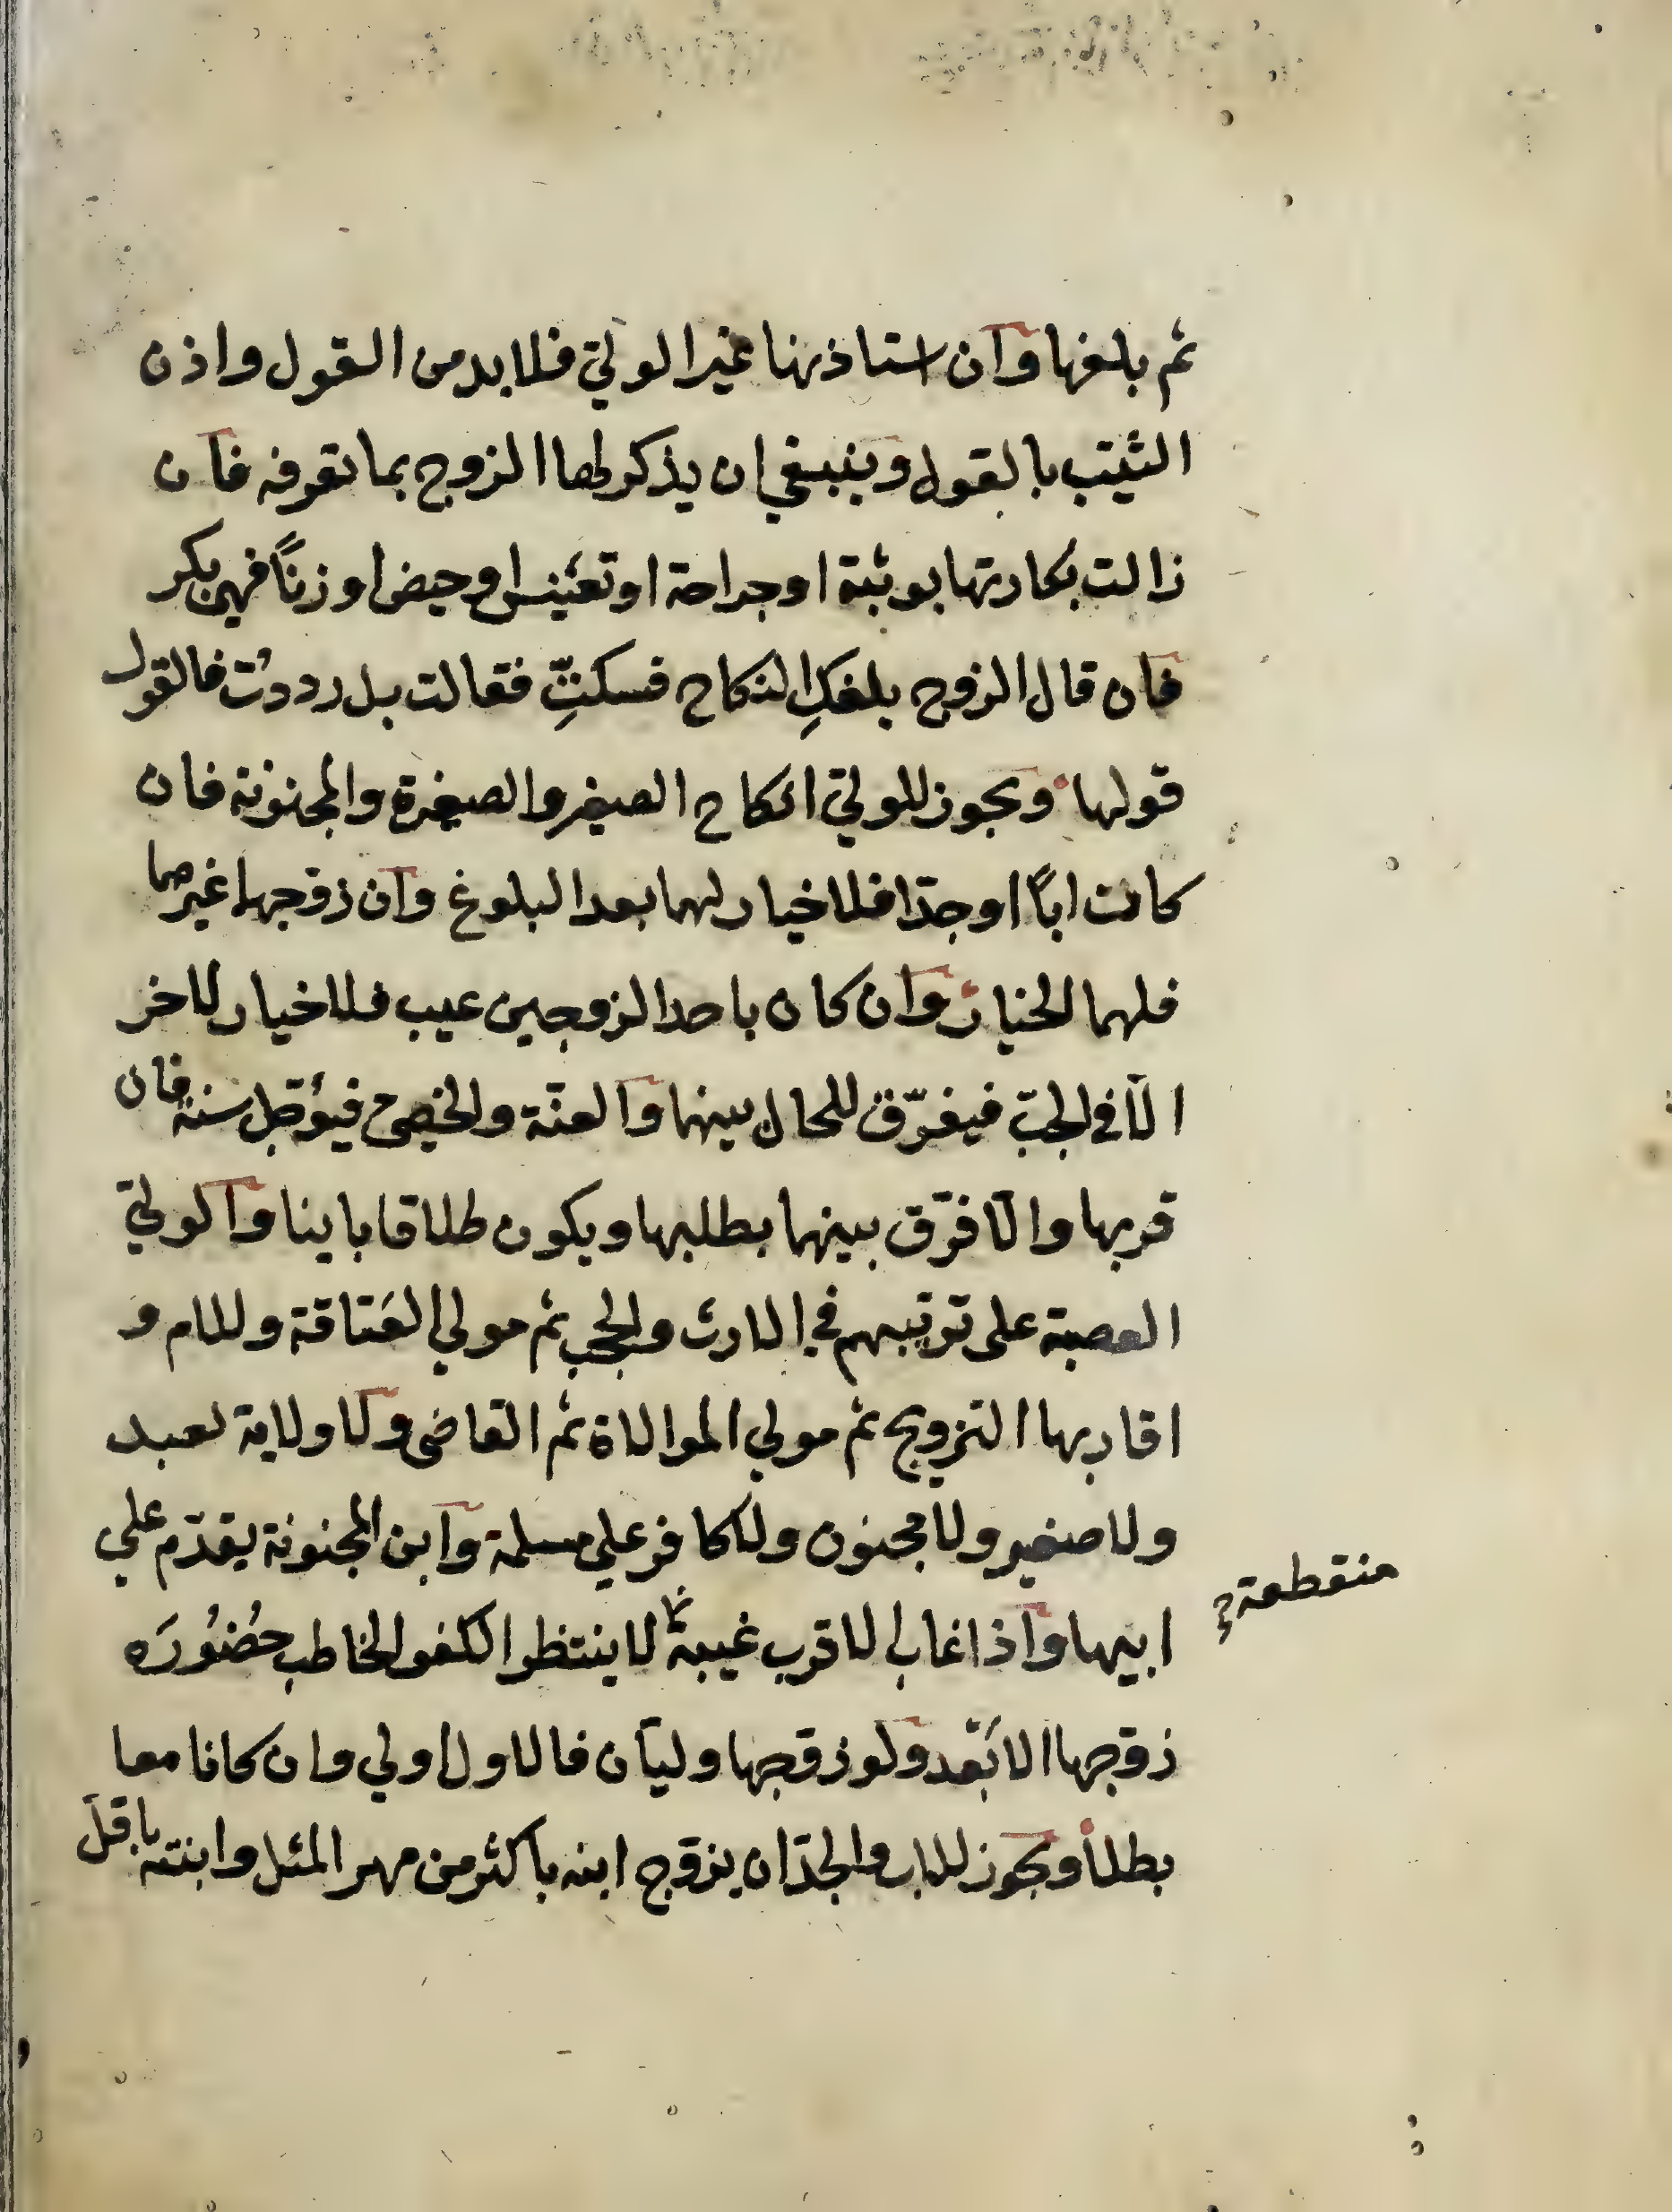 ثم بلغها وان استاذنها غير الولىّ فلا بد من القول واذن
الثيّب بالقول وينبغي ان يذكر لها الزوج بما تعرفه فان
زالت بكارتها بوثبة او جراحة او تعنيس او حيض او زنًا فهي بكر
فان قال الزوج بلغكِ النكاح فسكتِّ فقالت بل رددتُ فالقول
قولها ويجوز للولىّ انكاح الصغير والصغيرة والمجنونة فان
كانت ابًا او جدّا فلا خيار لهما بعد البلوغ وان زوّجهما غيرهما
فلهما الخيار وان كان باحد الزوجين عيب فلا خيار للاخر
الّا في الجبّ فيفرّق للحال بينهما والعنّة والخصي فيؤجّل سنةً فان
قربها والّا فرّق بينهما بطلبها ويكون طلاقا باينا والولىّ
العصبة على ترتيبهم في الارث والحجب ثم مولي العَتاقة وللام و
اقاربها التزويج ثم مولي الموالاة ثم القاضى ولا ولاية لعبد
ولا صغير ولا مجنون ولا كافر علي مسلمة وابن المجنونة يقدّم علي
ابيها واذا غاب الاقرب غيبةً لا ينتظر الكفو الخاطب حُضُورَه
منقطعة
زوّجها الابْعد ولو زوّجها وليّان فالاول اولي وان كانا معا
بطلا ويجوز للاب والجدّ ان يزوّج ابنه باكثر من مهر المثل وابنته باقلّ